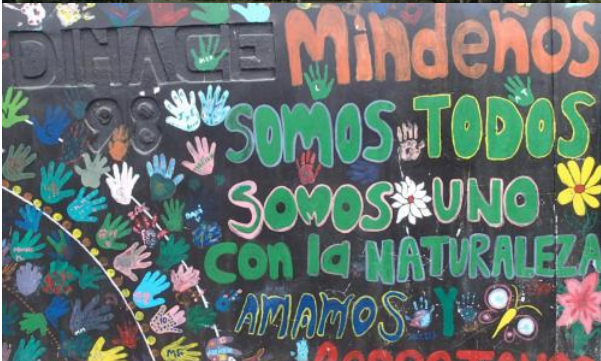 DIMACE
98
Mindeños
SOMOS TODOS
SOMOS UNO
con la NATURALEZA
AMAMOS Y